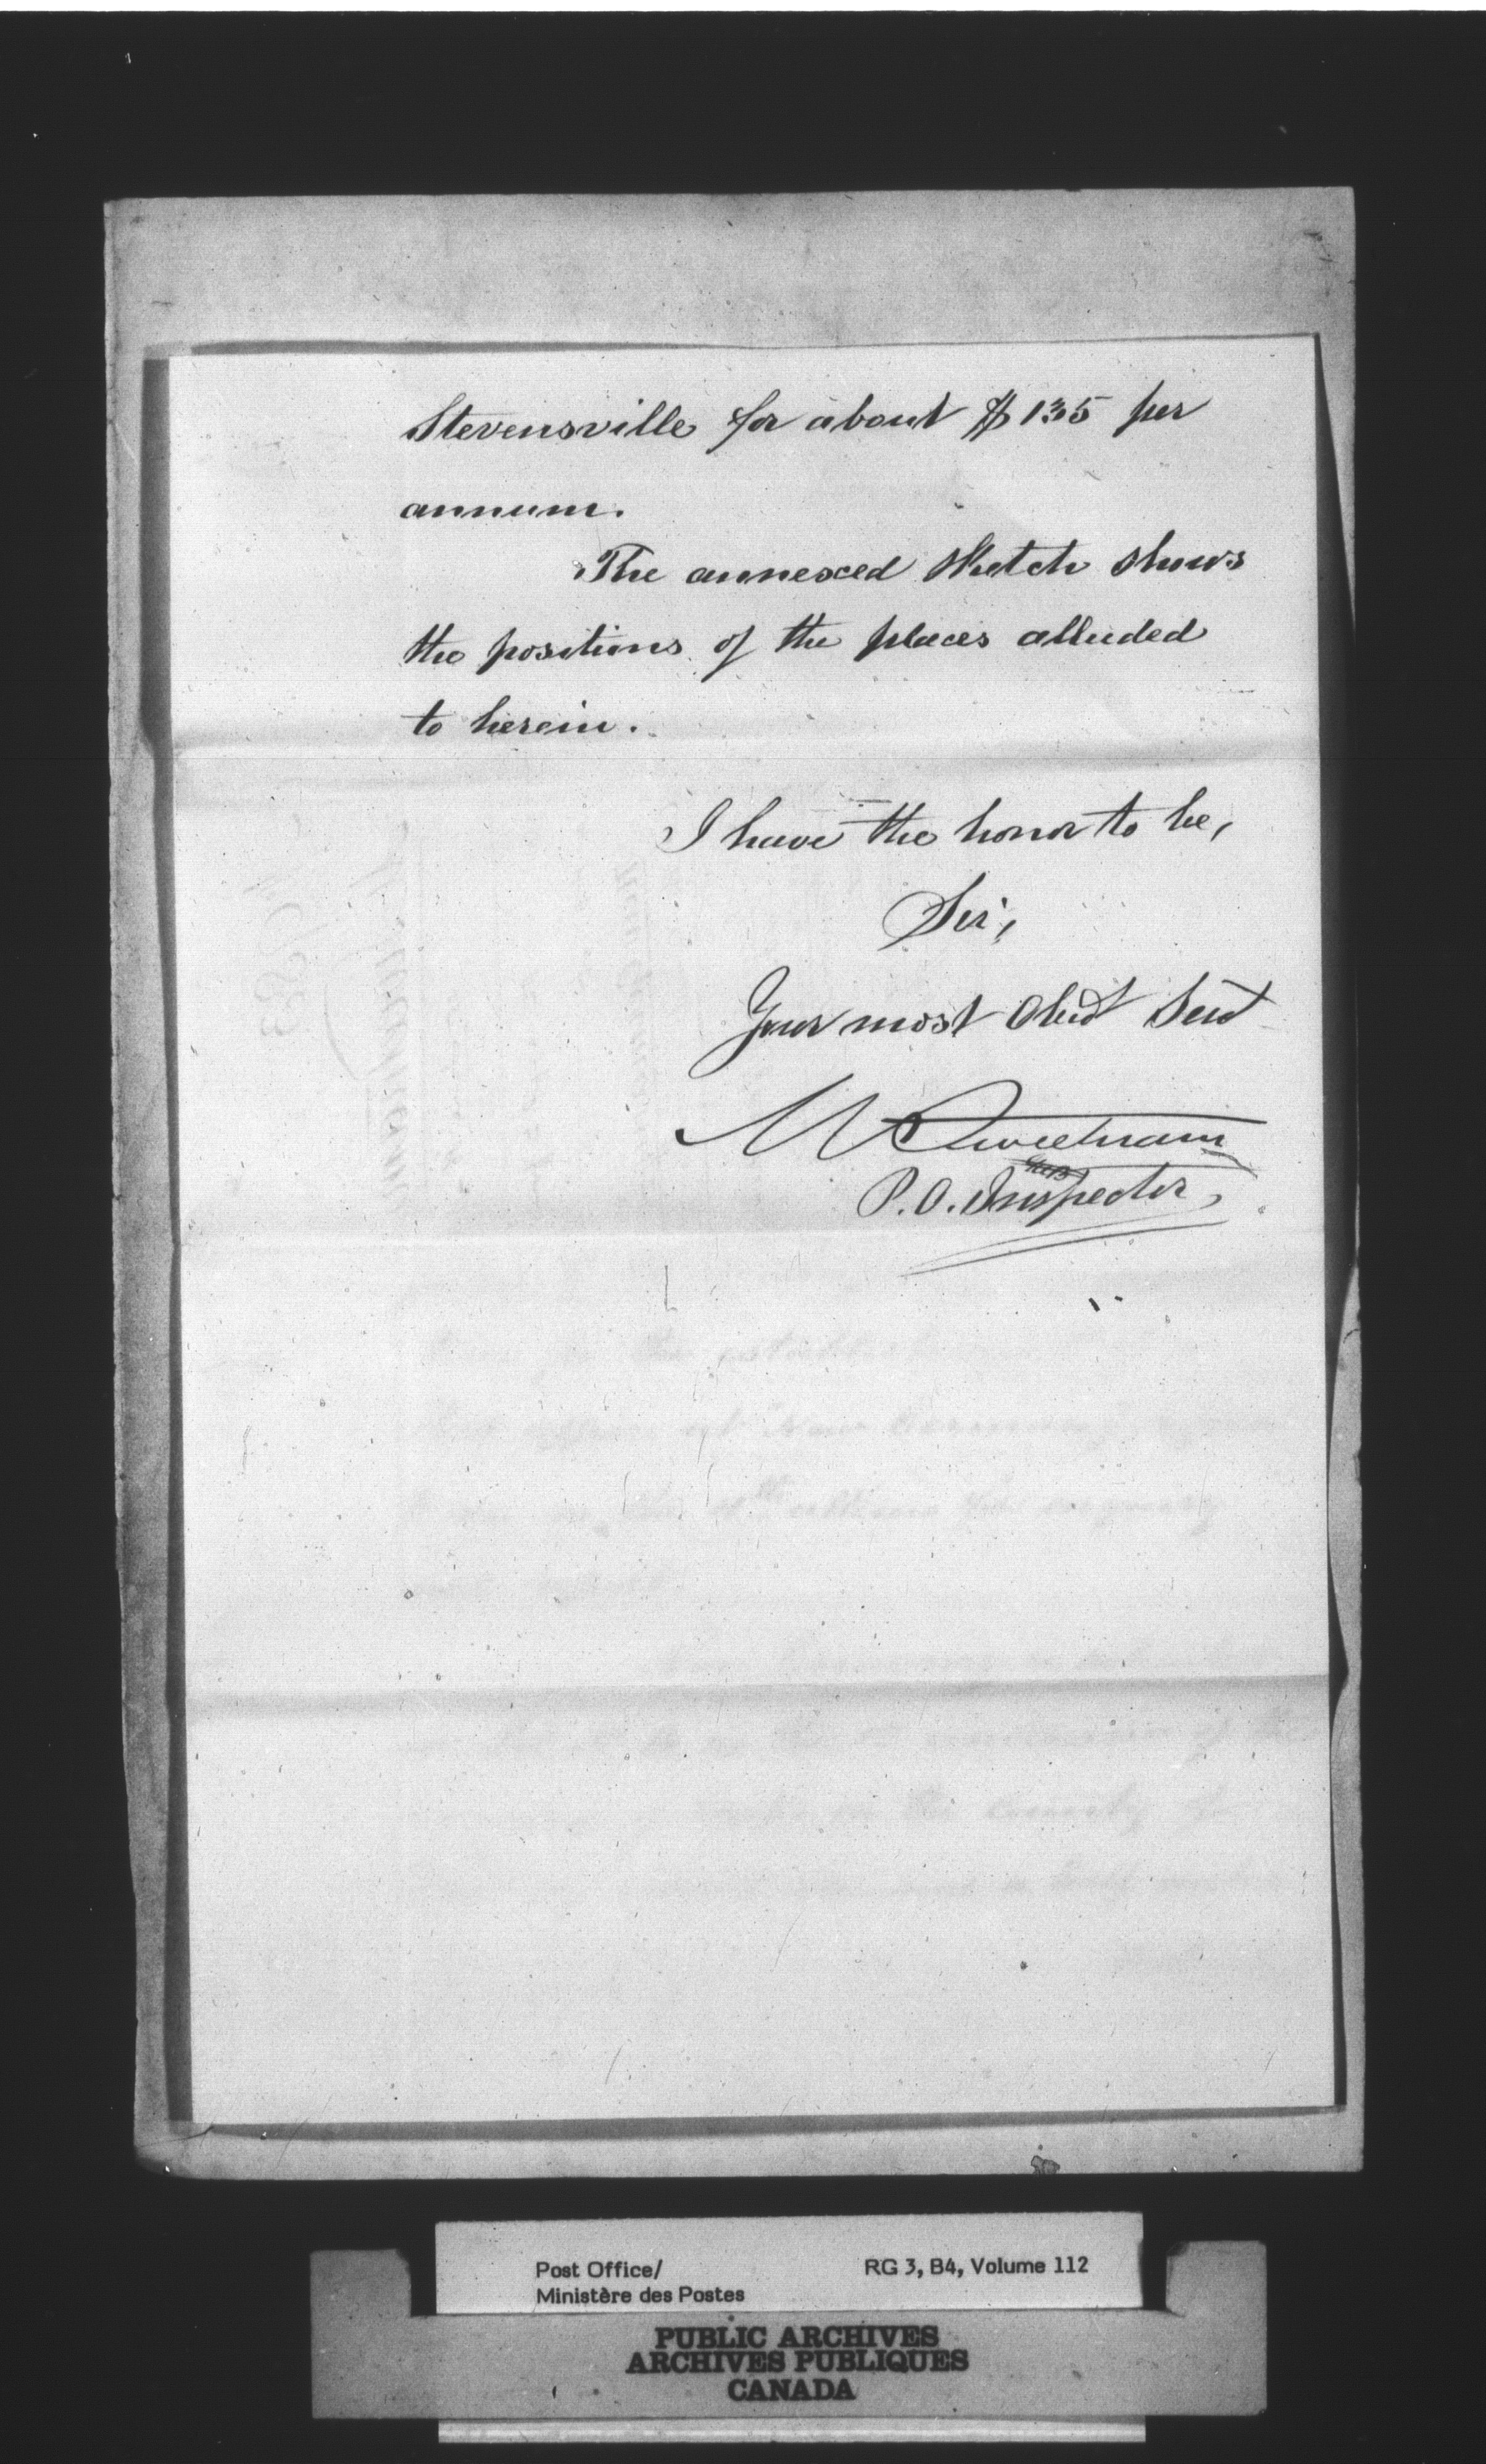 Stevensville for about $135 per
annum.
The annexed Sketch shows
the positions of the places alluded
to herein.
I have the honor to be,
Sir,
Your most Obedt Servt
M Sweetnam
P.O. Inspector
Post Office/
Ministère des Postes
RG 3, B4, Volume 112
PUBLIC ARCHIVES
ARCHIVES PUBLIQUES
CANADA